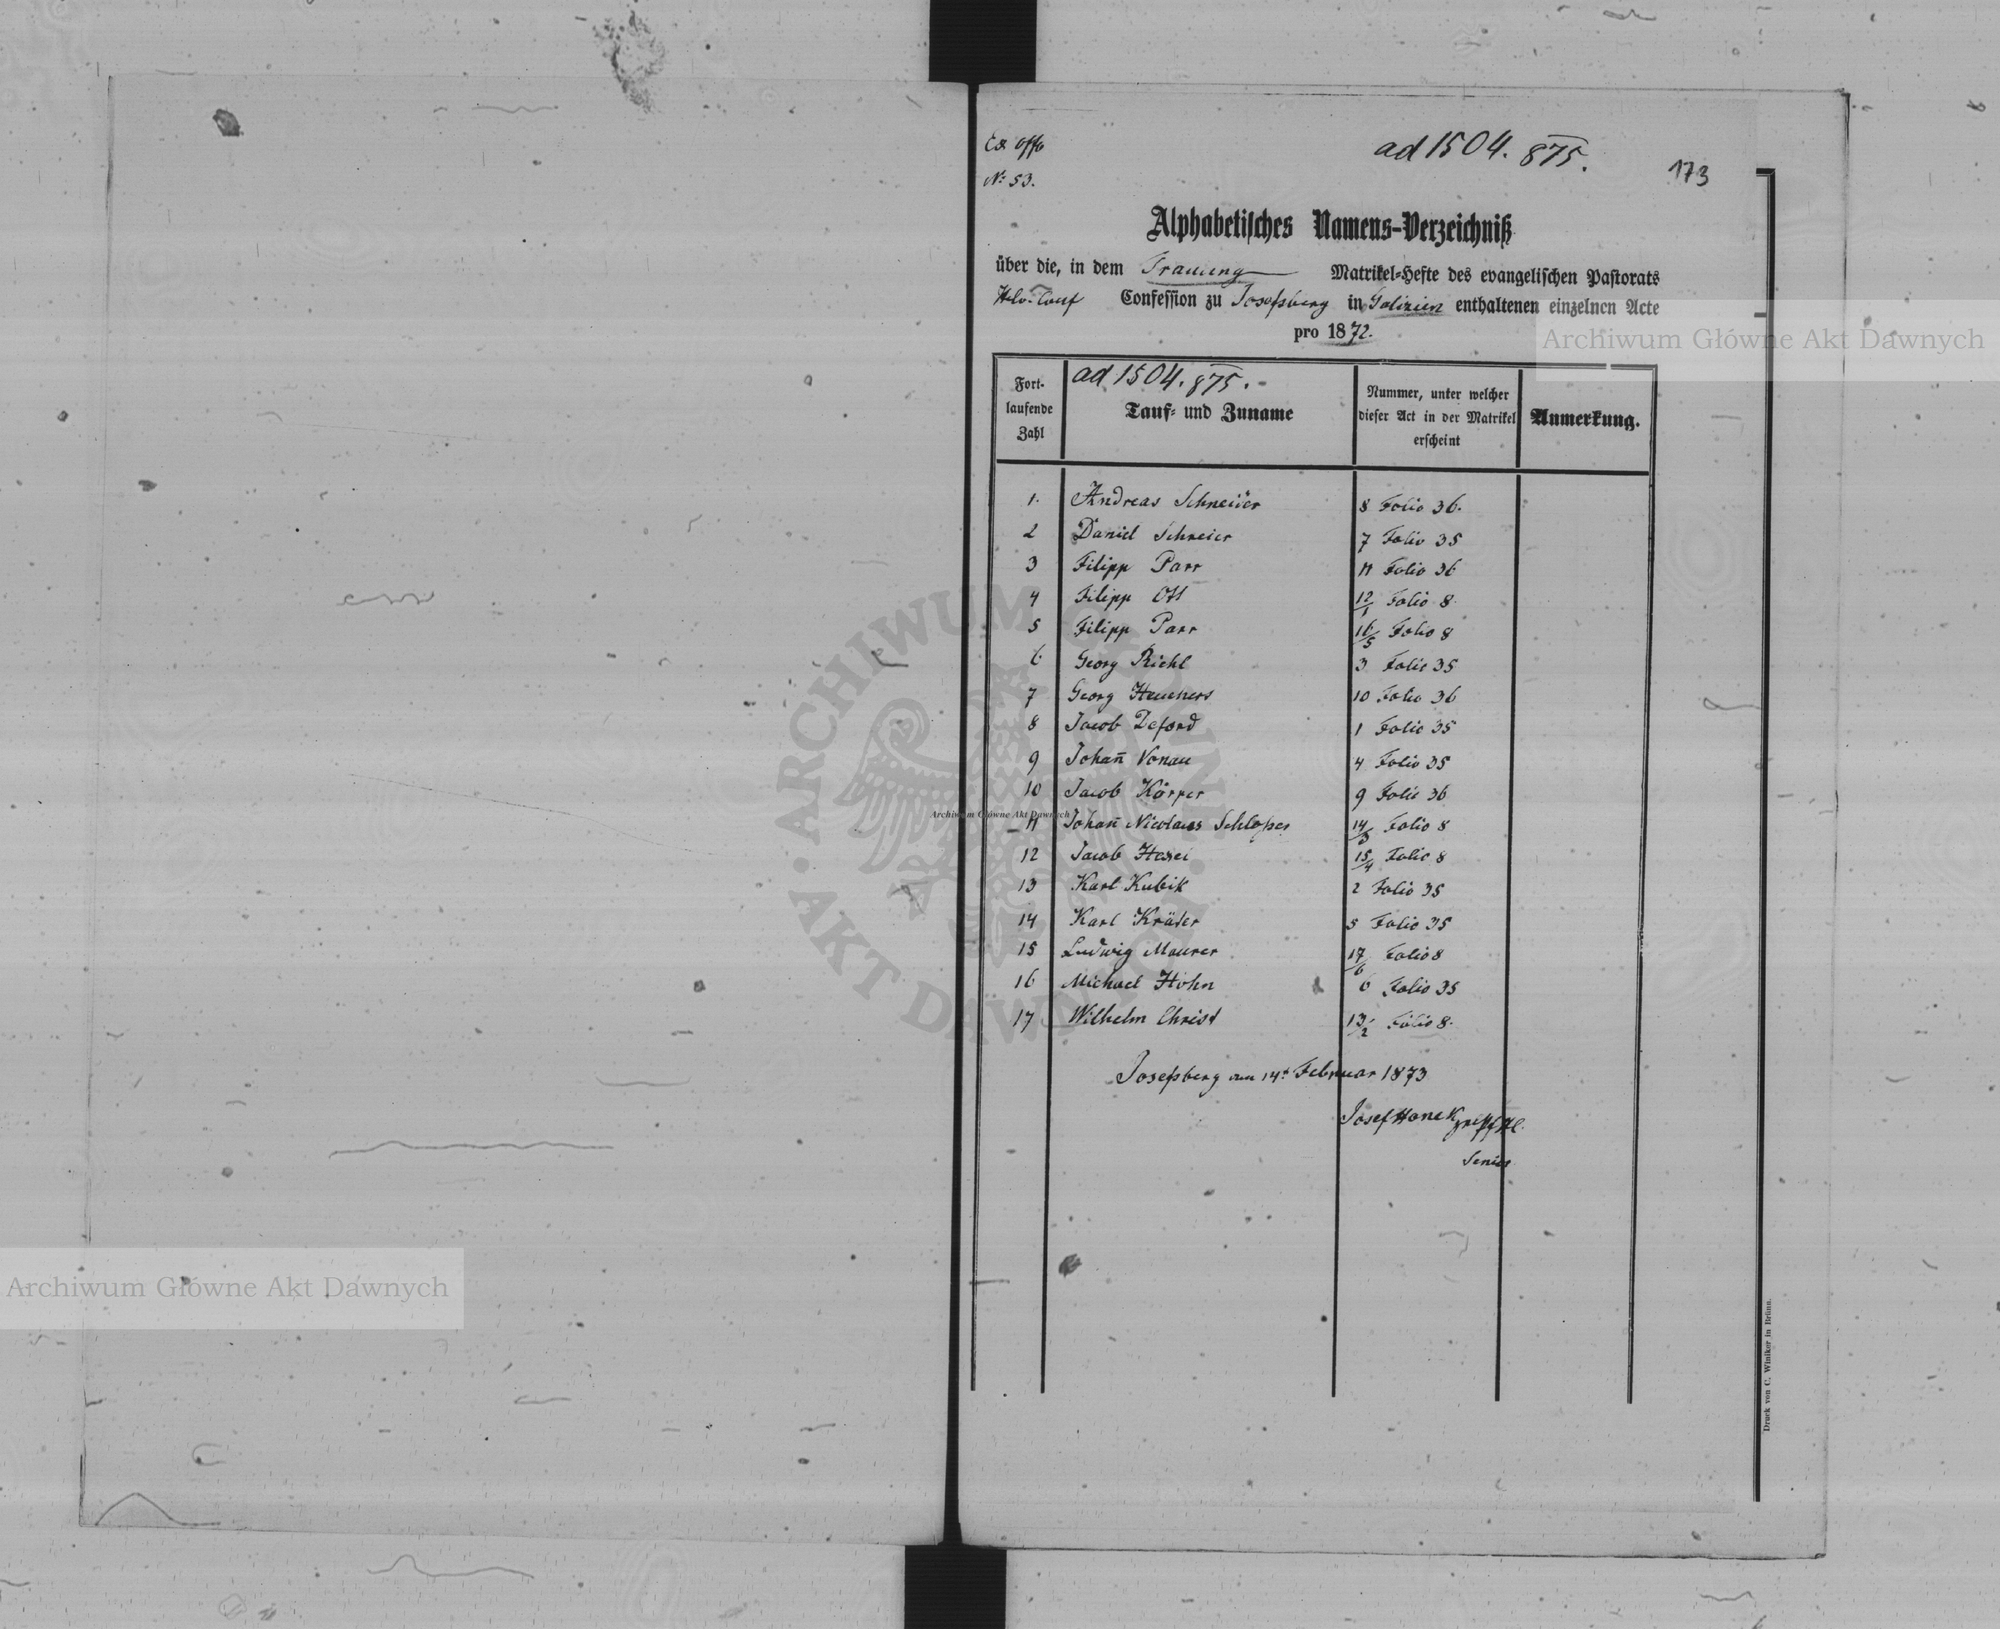 Ex offo
ad 1504. 875.
173
No 53.
Alphabetisches Namens-Verzeichniß
über die, in dem Trauung Matrikel-Hefte des evangelischen Pastorats
Helv. Conf Confession zu Josefsberg in Galizien enthaltenen einzelnen Acte
pro 1872.
Fortlaufende Zahl
ad 1504. 875.
Tauf- und Zuname
Nummer, unter welcher dieser Act in der Matrikel erscheint
Anmerkung.
1. Andreas Schneier 8 Folio 36.
2 Daniel Schreier 7 Folio 35
3 Filipp Parr 11 Folio 36
4 Filipp Ott 12/1 Folio 8.
5 Filipp Parr 16/5 Folio 8
6. Georg Riehl 3 Folio 35
7 Georg 10 Folio 36
8 Jacob Deford 1 Folio 35
9 Johañ Vonau 4 Folio 35
10 Jacob Körper 9 Folio 36
11 Johañ Nicolaus Schloßer 14/3 Folio 8
12 Jacob 15/4 Folio 8
13 Karl Kubik 2 Folio 35
14 Karl Kräter 5 Folio 35
15 Ludwig Maurer 17/6 Folio 8
16 Michael Hohn 6 Folio 35
17 Wilhelm Christ 13/2 Folio 8.
Josefsberg am 14t Februar 1873
Josef Honek
Senior
Druck von C. Winiker in Brünn.
Archiwum Główne Akt Dawnych
Archiwum Główne Akt Dawnych
Archiwum Główne Akt Dawnych